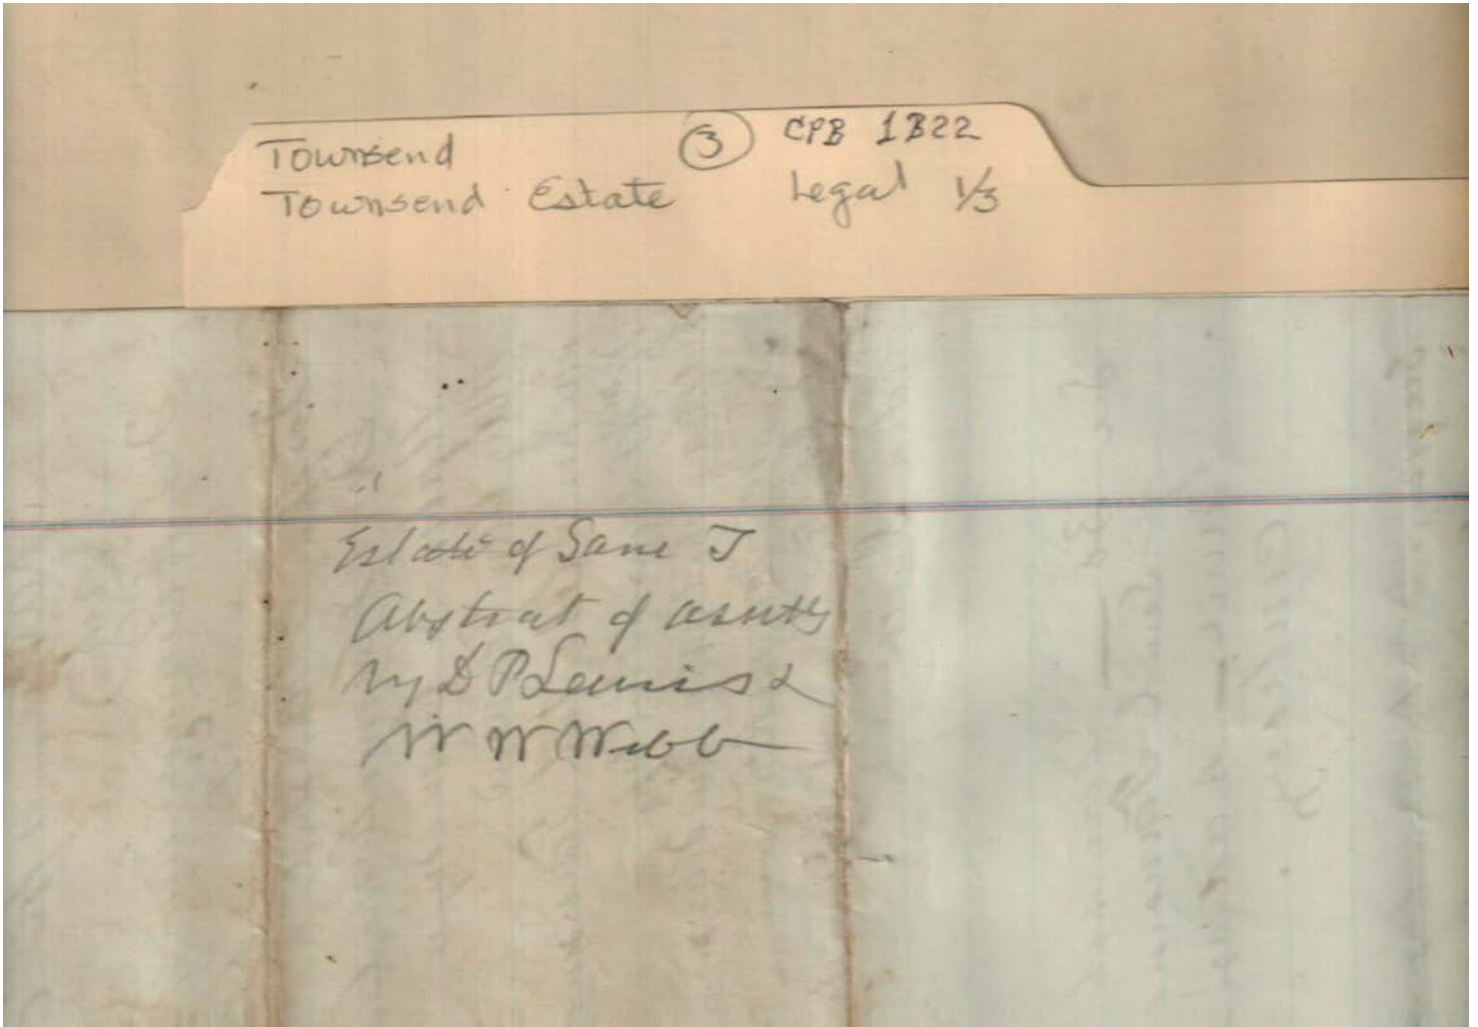 Townsend ③ CPB 1B22
Townsend Estate Legal 1/3
Estate of Saml T
Abstract of assets
by D P Lewis &
W W Webb